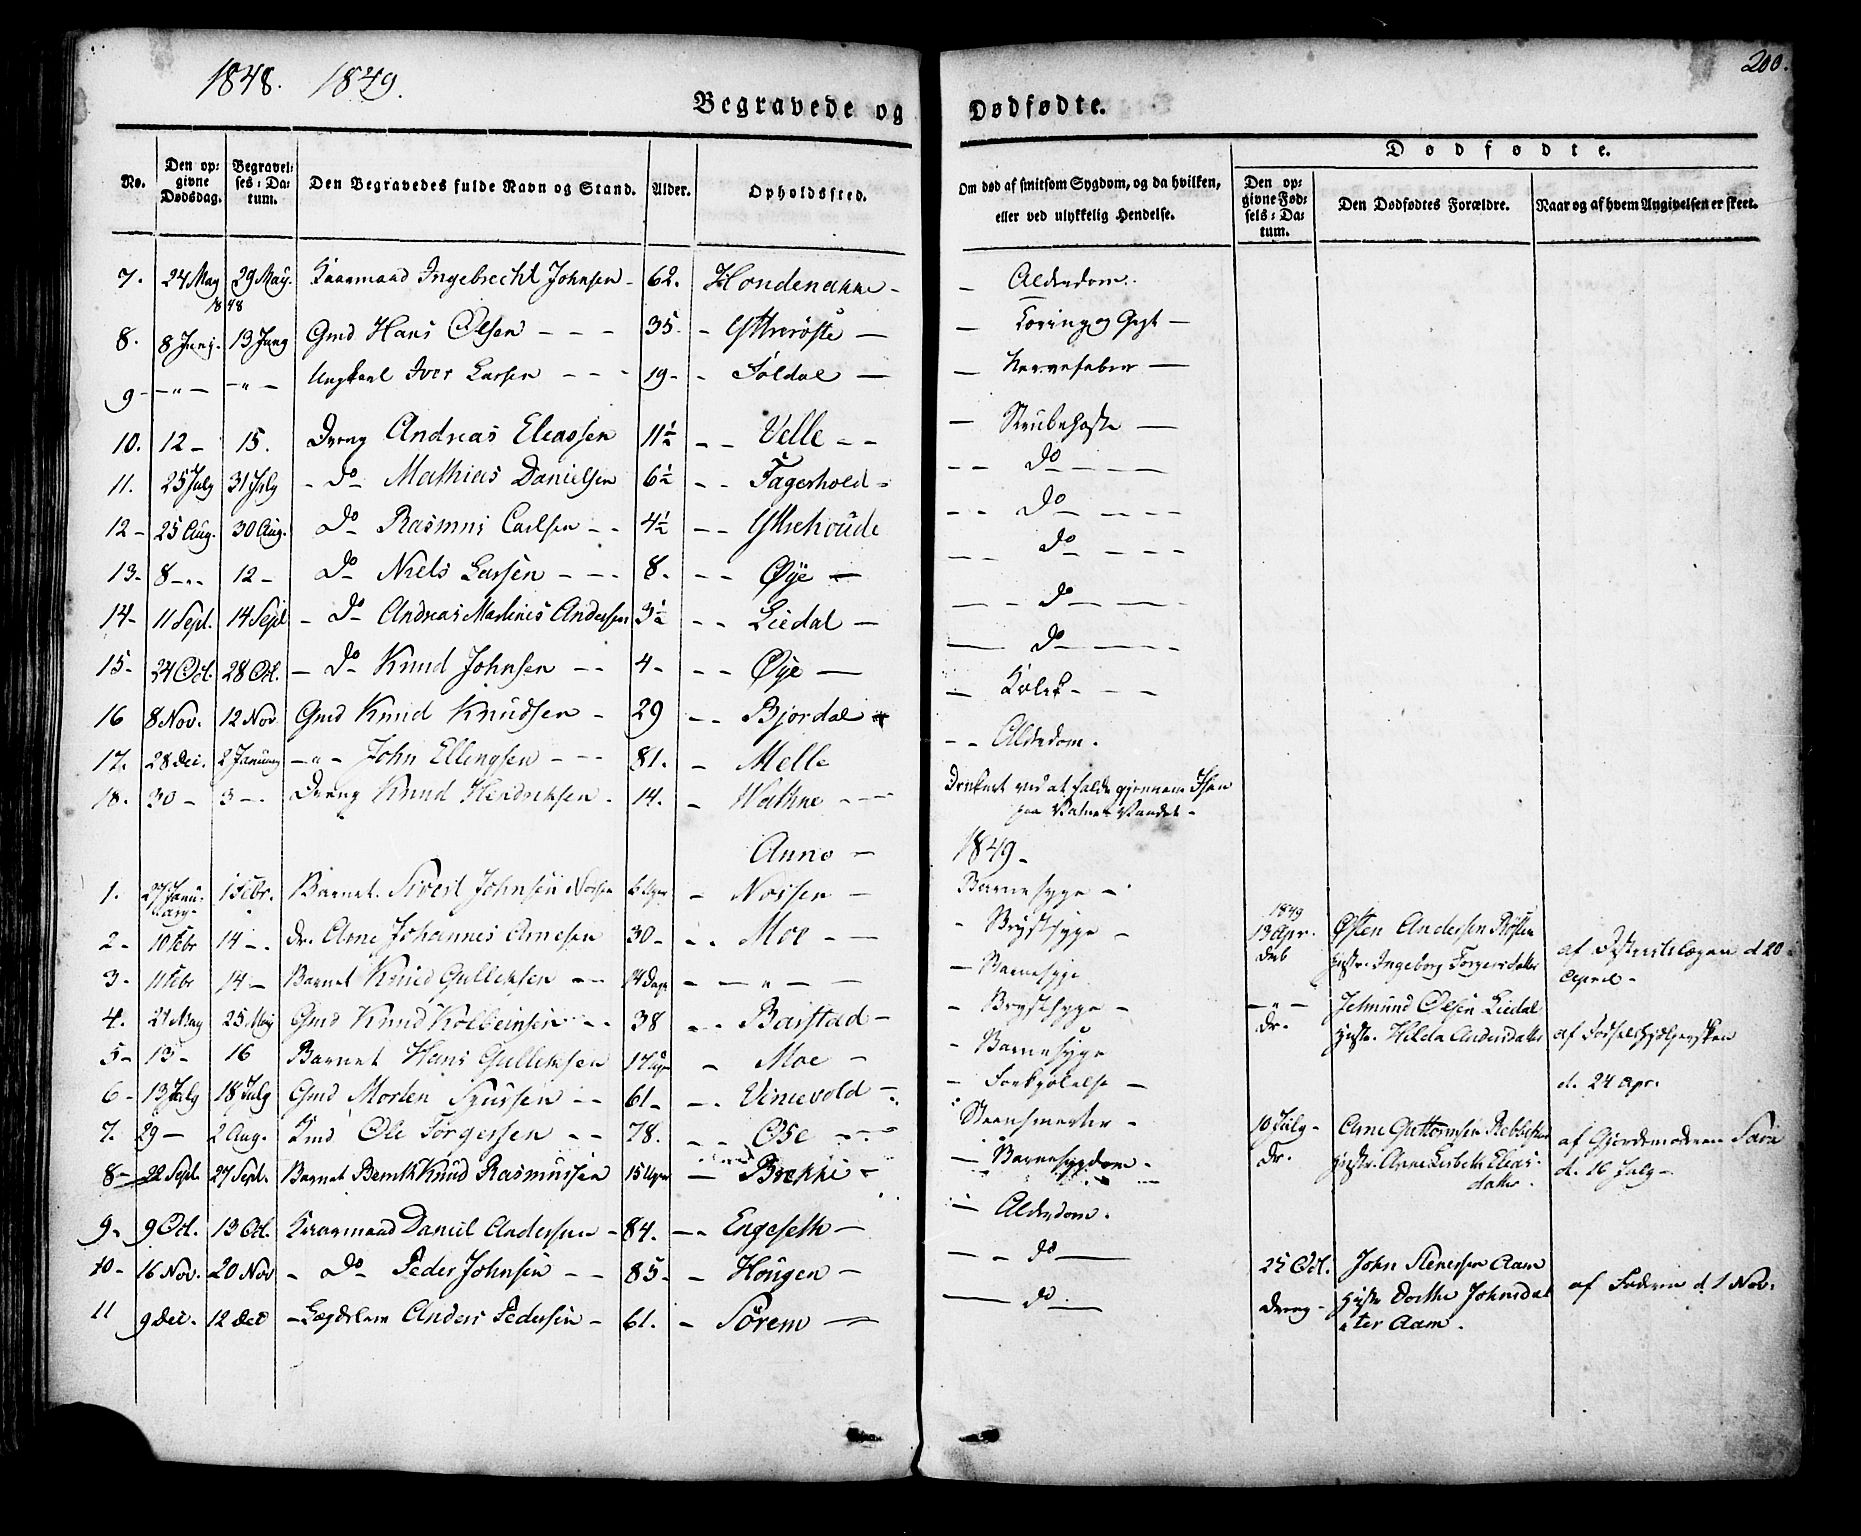 1848. 1849.
200.
Begravede og Dødfødte.
No.
Den op-
givne
Dødsdag.
Begravel-
ses-Da-
tum.
Den Begravedes fulde Navn og Stand.
Alder.
Opholdssted.
Om død af smitsom Sygdom, og da hvilken,
eller ved ulykkelig Hendelse.
Dødfødte.
Den op-
givne Fød-
sels-Da-
tum.
Den Dødfødtes Forældre.
Naar og af hvem Angivelsen er skeet.
7. 24 May 29 May. Kaarmand Ingebrecht Johnsen - 62. Hondenakke - - Alderdom.
1848
8. 8 Junj. 13 Juny Gmd Hans Olsen - - - 35. - Yttrerøste - - Toring og Gigt -
9 - - " - - " - Ungkarl Iver Larsen - - - 19 - - Søldal - - Nervefeber -
10. 12 - 15. Dreng Andreas Eleassen 11½ - - Velle - - - Strubehoste -
11. 25 July 31 July - Do Mathias Danielsen 6½ - - Fagerhold - - - Do - - -
12 - 25 Aug. 30 Aug. Do Rasmus Carlsen - - 4½ - - Yttrehoude - - Do - - -
13 - 8 - - - 12 - Do Niels Larsen - - - 8. - - Øye - - - Do - - -
14 - 11 Sept. 14 Sept - Do Andreas Martinus Andersen 3½ - - Liedal - - - Do - - -
15 - 24 Oct. 28 Oct. - Do Knud Johnsen - - 4 - - - Øye - - Do - - -
16 8 Nov. 12 Nov. Gmd Knud Knudsen - 29 - - Bjordal - Kolik - - -
17. 28 Dec. 2 January - " - John Ellingsen - - - 81. - Melle - - Alderdom.
18. 30 - 3 - - Dreng Knud Hendriksen - 14. - Wathne - - - Druknet ved at falde gjennem Isen
paa Vatne Vandet -
Anno - 1849 -
1. 27 Janu- 1 Febr. Barnet Sivert Johnsen Nossen 6 Uger - Nossen - Barnesyge -
ary
2 - 10 Febr 14 - - dr. Arne Johannes Arnesen 30 - - - Moe - - - Brystsyge -
1849
13 Apr. Østen Andersen Røsten
Hustr. Ingeborg Torgersdatter af Distriktslægen d 20
April -
3 - 11 Febr 14 - Barnet Knud Gulleksen - - 14 Dage - - " - - - Barnesyge
4. 21 May 25 May Gmd Knud Kolbeinsen - - 38 - - Barstad - - Brystsyge -
- " - Jetmund Olsen Liedal
Dr. Hustr. Hilda Andersdatter af Fødselshjelpersken
d. 24 Apr.
5 - 13 - 16 Barnet Hans Gulleksen 17 Uger - Moe - - Barnesyge
6 - 13 July 18 July Gmd Morten Sjursen - - 61 - - - Vinevold - - Forkjølelse -
7. 29 - 2 Aug. Kmd Ole Torgersen - - 78. - - Ose - - - Steensmerter -
10 July - Arne Guttormsen
Dr. Hustr. Anne Lisbeth Elias-
datter. af Gjordemoderen Sara
d. 16 July -
8 - 22 Sept. 27 Sept. Barnet Bernth Knud Rasmussen 15 Uger - Brekke - - Barnesygdom -
9 - 9 Oct. 13 Oct. Kaarmand Daniel Andersen - 84. - - Engeseth - - Alderdom.
10 - 16 Nov. 20 Nov - Do Peder Johnsen - - 85 - - Hougen - - - do -
25 Oct. John Stenersen Aam
Dreng - Hustr Dorthe Johnsdat
ter Aam. af Faderen d. 1 Nov.
11 9 Dec. 12 Dec - Lægdslem Anders Pedersen - 61. - Sörem - - do -